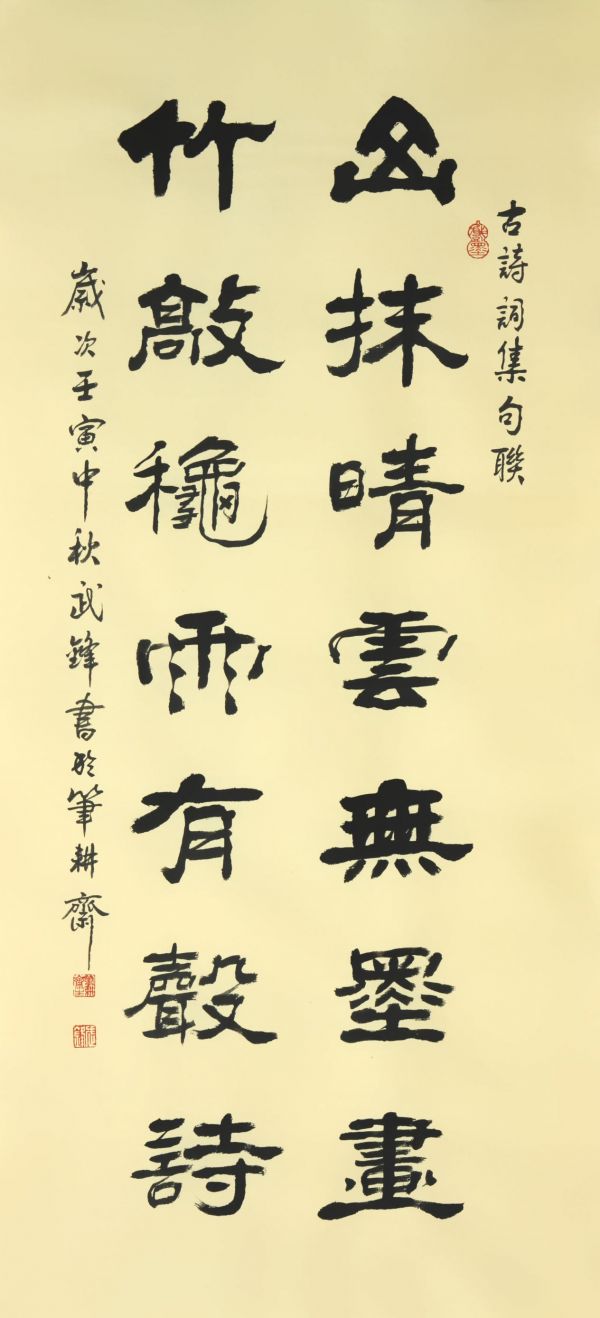 古詩詞集句聯
山抹晴雲無墨畫
竹敲龝雨有聲詩
歲次壬寅中秋武鋒書於筆耕齋